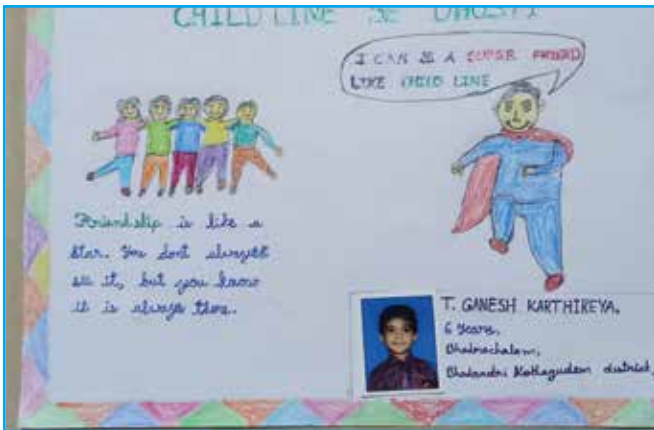 CHILD LINE SE DHOSTI
I CAN BE A SUPER FRIEND
LIKE CHILD LINE
Friendship is like a
star. You dont always
see it, but you know
it is always there.
T. GANESH KARTHIREYA.
6 Years,
Bhadrachalam,
Bhadradri Kothagudem district,